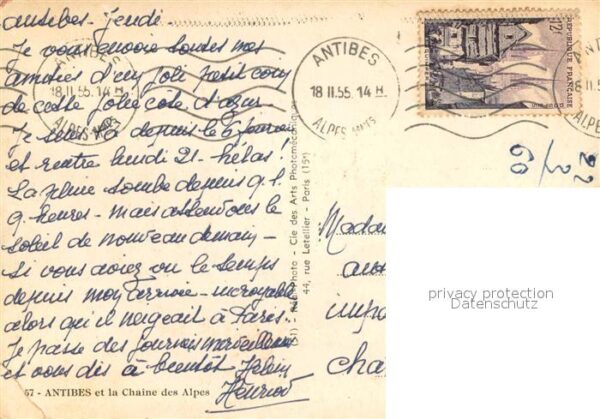 antibes - jeudi -
Je vous envoie toutes mes
amitiés d'un joli petit coin
de cette jolie côte d'azur -
Je suis là depuis le 6
et rentre lundi 21 - hélas !
La pluie tombe depuis q.q.
heures - mais attendons le
soleil de nouveau demain -
Si vous aviez vu le temps
depuis mon arrivée - incroyable
alors qu'il neigeait à Paris.
Je passe des journées merveilleuses
et vous dis à bientôt
57 - ANTIBES et la Chaîne des Alpes
ANTIBES
18 II.55. 14 H
ALPES MMES
ANTIBES
18 II.55. 14 H
ALPES MMES
ANTI
18 II.5
12F
REPUBLIQUE FRANÇAISE
Cie des Arts Photomécaniques
44, rue Letellier - Paris (15e)
22
3
60
Madam
privacy protection
Datenschutz